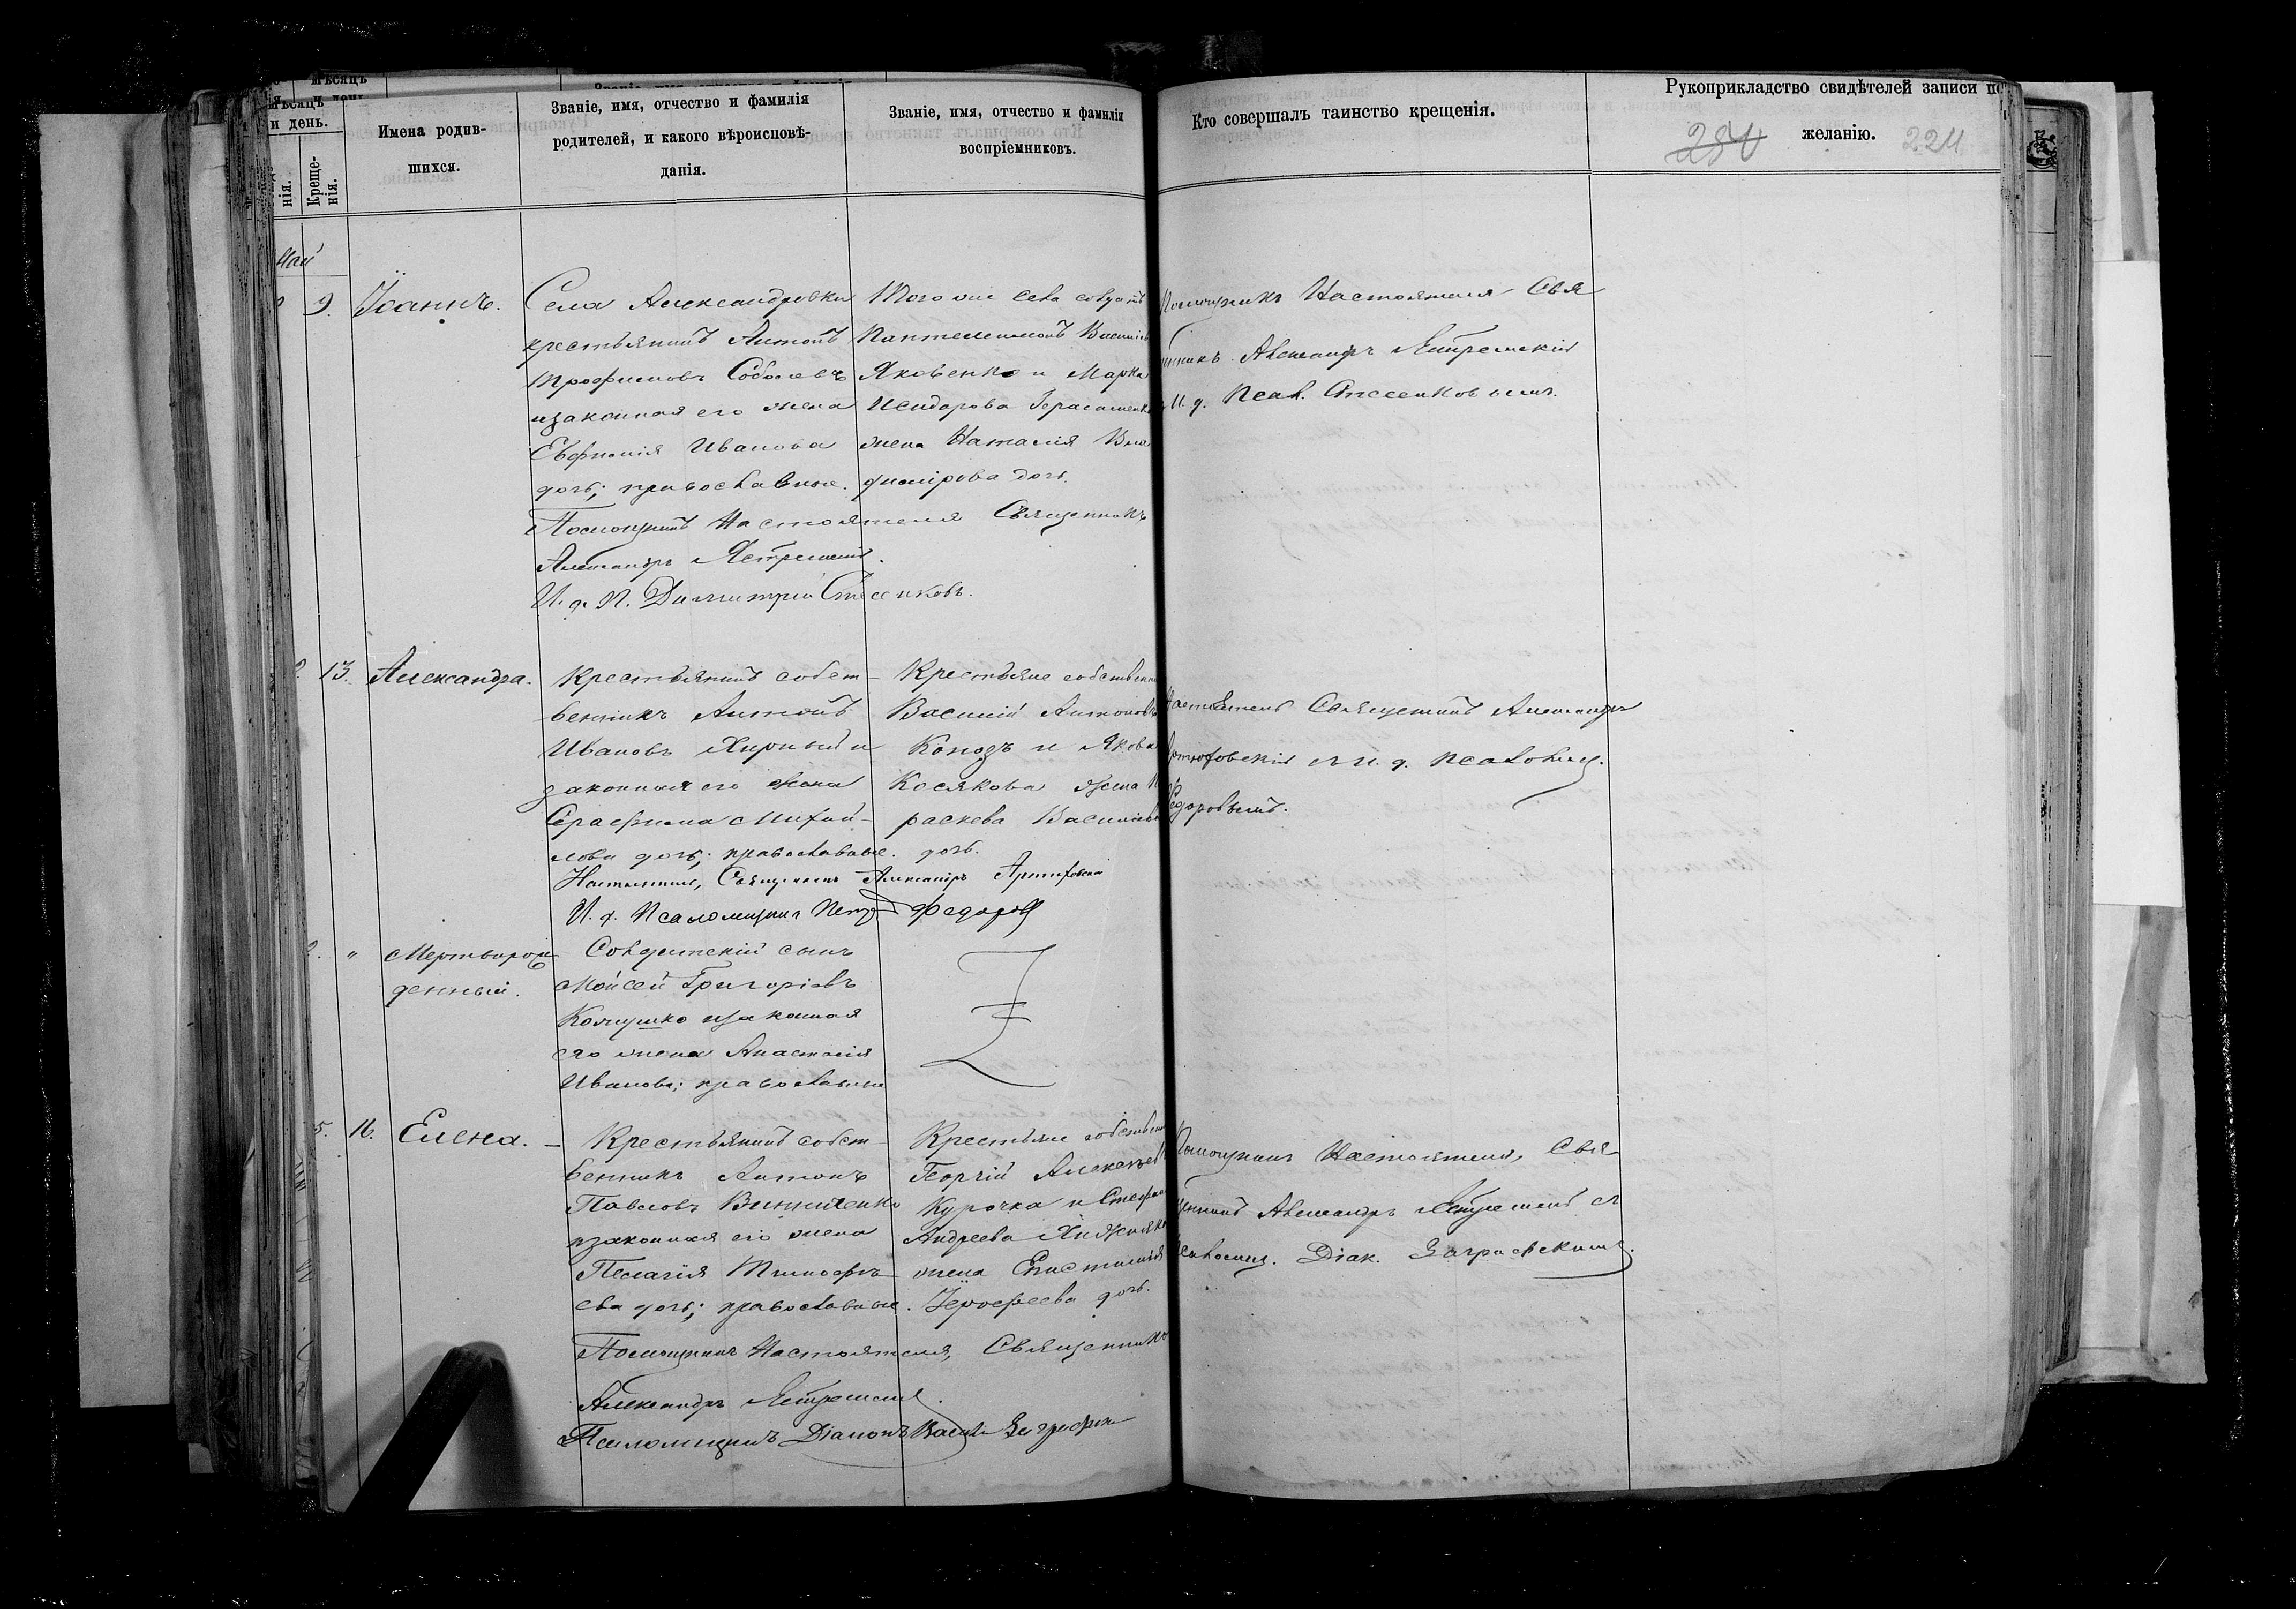 Мѣсяцъ
Мѣсяцъ
и день.
нія.
Креще-
нія.
Имена родив-
шихся.
Званіе, имя, отчество и фамилія
родителей, и какого вѣроисповѣ-
данія.
Званіе, имя, отчество и фамилія
воспріемниковъ.
Кто совершалъ таинство крещенія.
Рукоприкладство свидѣтелей записи по
желанію.
284
224
Май
9.
Іоаннъ.
Села Александровки
крестьянинъ Антонъ
Трофимовъ Соболевъ
и законная его жена
Евфимія Иванова
дочь; православные.
Того же села
Пантелеимонъ Василіевъ
Яковенко и Марка
Исидорова Герасименко
жена Наталія Вла
димірова дочь.
Помощникъ Настоятеля Свя
щенникъ Александръ
и. д. Псал. Стесенковымъ.
Помощникъ Настоятеля Священникъ
Александръ
И. д. П. Димитрій Стесенковъ.
13.
Александра.
Крестьянинъ собст-
венникъ Антонъ
Ивановъ Жирный и
законная его жена
Серафима Михай-
лова дочь; православные.
Крестьяне собственни
Василій Антоновъ
и Якова
Косякова жена П
раскева Василіева
дочь.
Настоятель Священникъ Александръ
и. д. Псаломщ.
Федоровымъ.
Настоятель, Священникъ Александръ
И. д. Псаломщика Петръ Федоровъ
"
Мертворож
денный.
Солдатскій сынъ
Моисей Григоріевъ
и законная
его жена Анастасія
Иванова; православные
5.
16.
Елена.
Крестьянинъ собст-
венникъ Антонъ
Павловъ Винниченко
и законная его жена
Пелагія Тимофѣ-
ева дочь; православные.
Крестьяне собственни
Георгій Алексѣевъ
Курочка и Стефана
Андреева
жена Епистимія
Іерофеева дочь.
Помощникъ Настоятеля, Свя-
щенникъ Александръ съ
Псаломщ. Діак. Заграфскимъ.
Помощникъ Настоятеля, Священникъ
Александръ
Псаломщикъ Діаконъ Василій Заграфскій